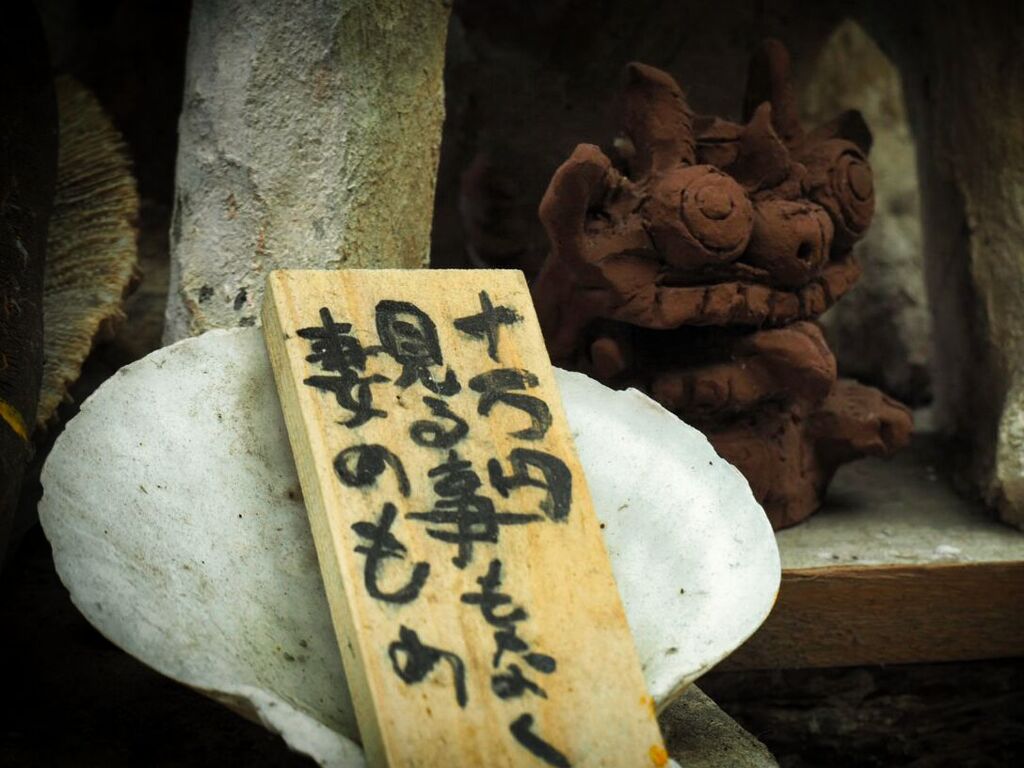 十万円
見る事もなく
妻のもの